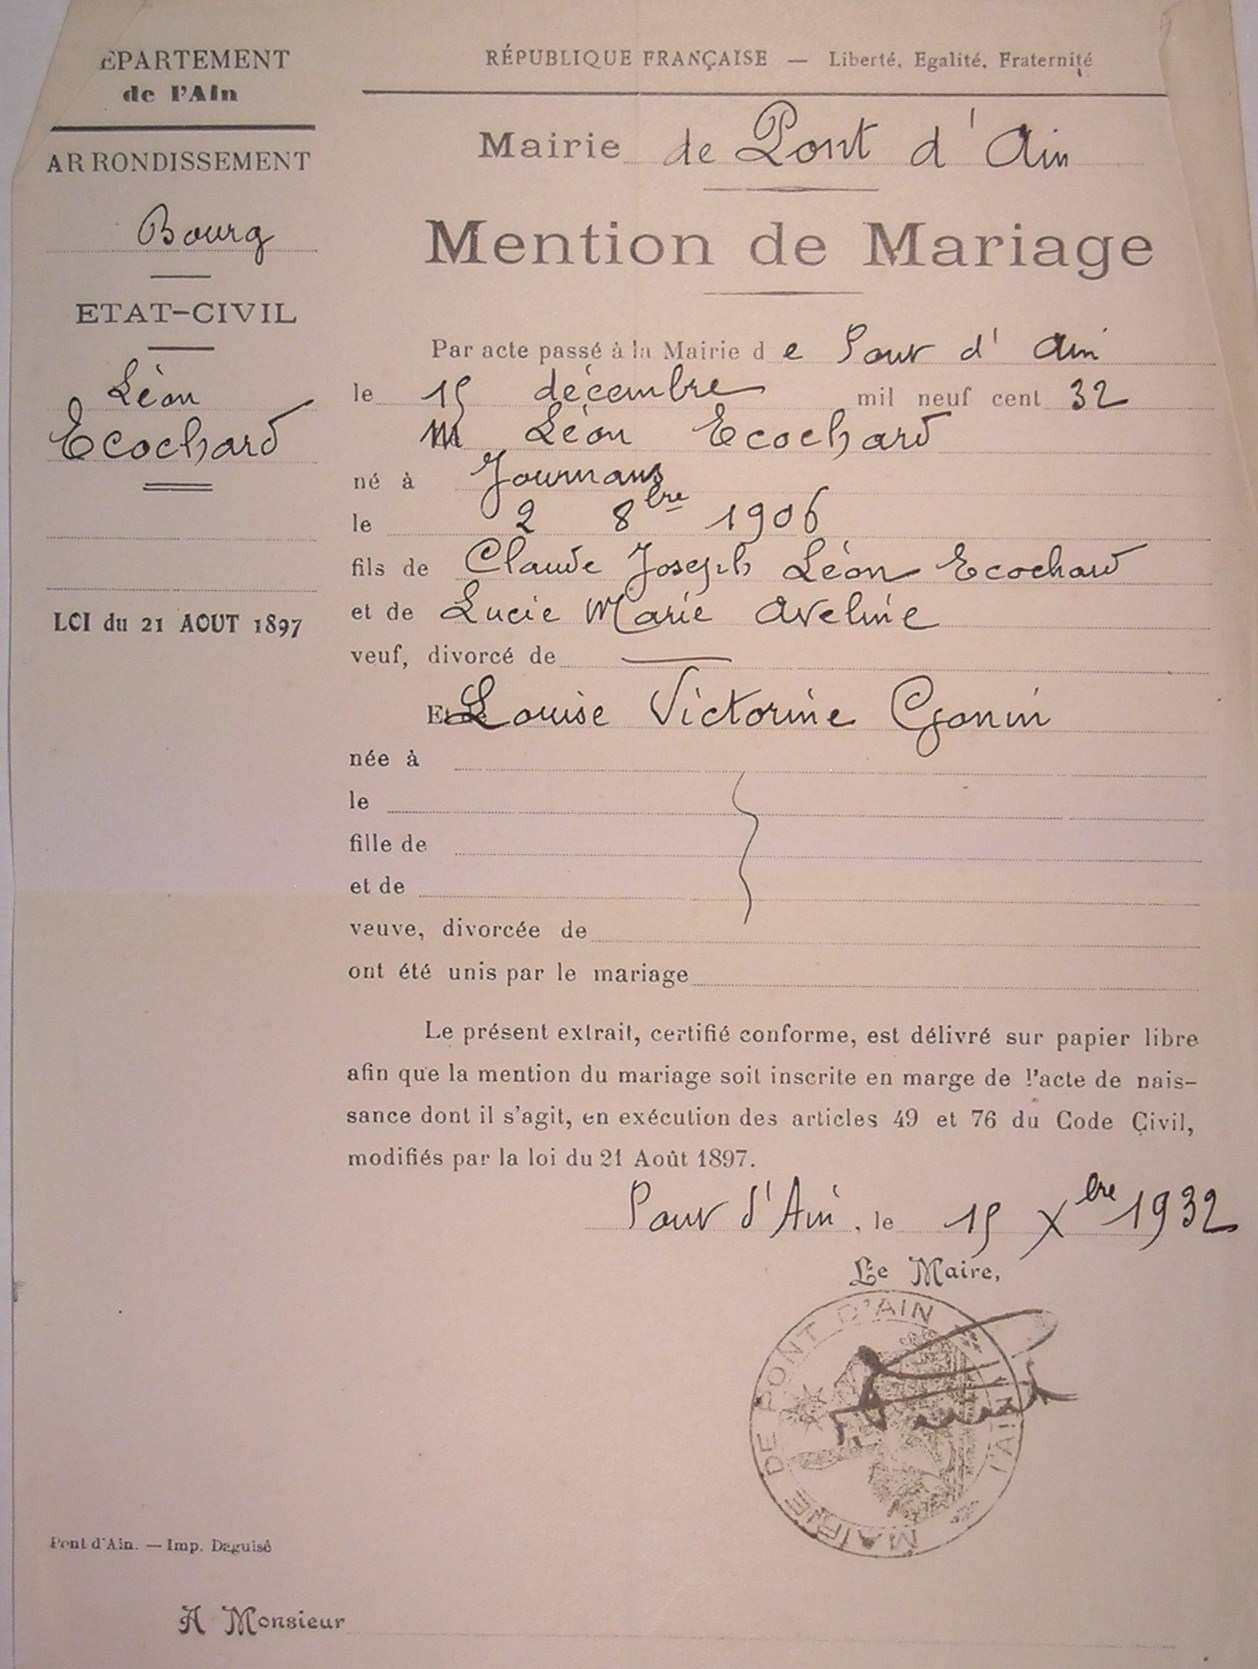 ÉPARTEMENT
de l'Ain
ARRONDISSEMENT
Bourg
ETAT-CIVIL
Léon
Ecochard
LOI du 21 AOUT 1897
RÉPUBLIQUE FRANÇAISE — Liberté, Egalité, Fraternité
Mairie de Pont d'Ain
Mention de Mariage
Par acte passé à la Mairie de Pont d'Ain
le 15 décembre mil neuf cent 32
M Léon Ecochard
né à Journans
le 2 8bre 1906
fils de Claude Joseph Léon Ecochard
et de Lucie Marie Aveline
veuf, divorcé de —
Et de Louise Victorine Gonin
née à
le
fille de
et de
veuve, divorcée de
ont été unis par le mariage
Le présent extrait, certifié conforme, est délivré sur papier libre
afin que la mention du mariage soit inscrite en marge de l'acte de nais-
sance dont il s'agit, en exécution des articles 49 et 76 du Code Civil,
modifiés par la loi du 21 Août 1897.
Pont d'Ain, le 15 Xbre 1932
Le Maire,
MAIRIE DE PONT D'AIN
L'AIN
Pont d'Ain. — Imp. Deguisé
A Monsieur